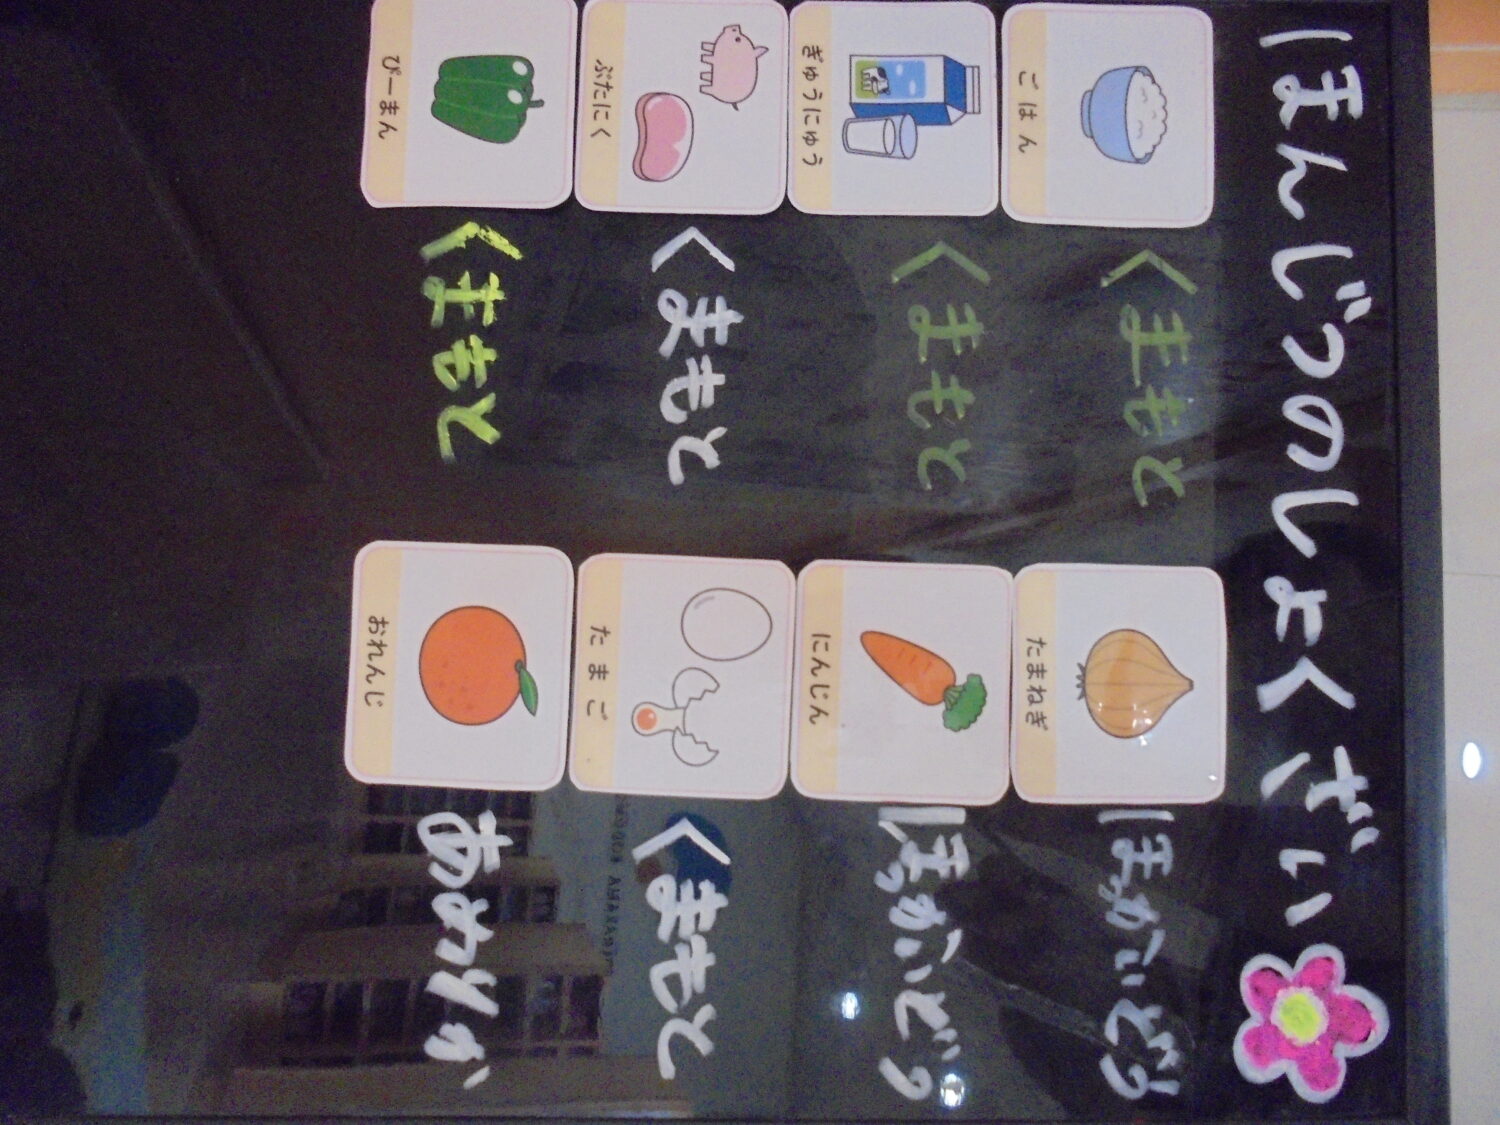 ほんじつのしょくざい
ごはん くまもと たまねぎ ほっかいどう
ぎゅうにゅう くまもと にんじん ほっかいどう
ぶたにく くまもと たまご くまもと
ぴーまん くまもと おれんじ あめりか